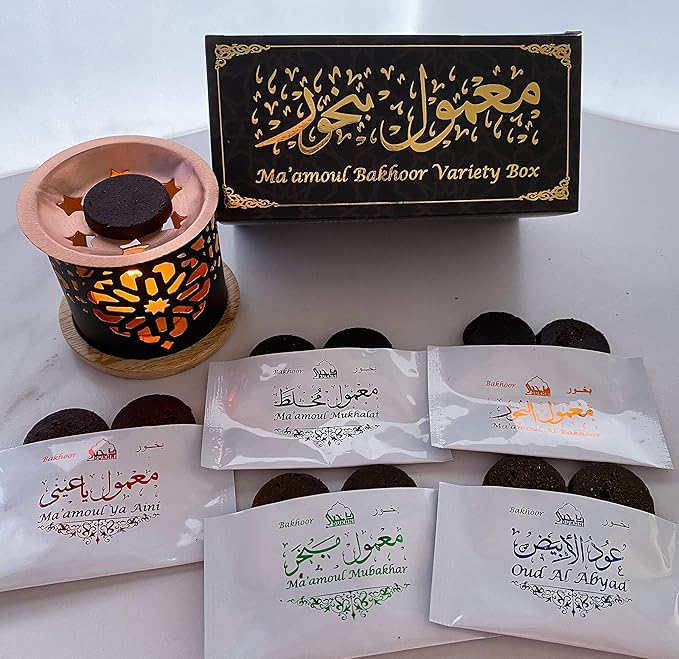 معمول بخور
Ma'amoul Bakhoor Variety Box
Bakhoor بخور
معمول مخلط
Ma'amoul Mukhalat
Bakhoor بخور
معمول البخور
Ma'amoul Al Bakhoor
Bakhoor بخور
معمول ياعيني
Ma'amoul Ya Aini
Bakhoor بخور
معمول مبخر
Ma'amoul Mubakhar
Bakhoor بخور
عود الأبيض
Oud Al Abyad